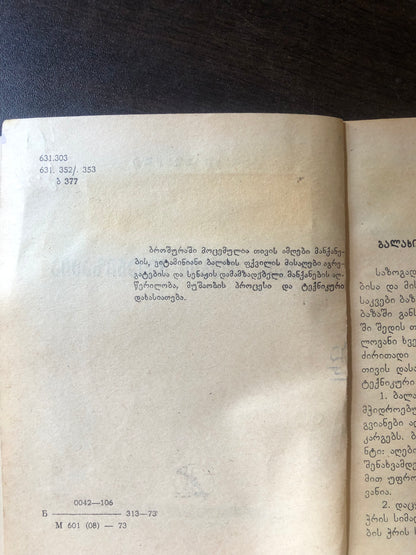 631.303
631. 352/. 353
ბ 377
ბროშურაში მოცემულია თივის ამღები მანქანე-
ბის, ვიტამინიანი ბალახის ფქვილის მისაღები აგრე-
გატებისა და სენაჟის დამამზადებელი მანქანების აღ-
წერილობა, მუშაობის პროცესი და ტექნიკური
დახასიათება.
0042—106
Б ——— 313—73
М 601 (08) — 73
ბალახი
საზოგად
ბისა და მის
საკვები ბაზ
ბაზაში განს
ში შედის თ
ლოვანი ხვე
ძირითადი
თივის დასა
ტექნიკური
1. ბალა
მჭიდროებუ
გვიანები ად
კარგებს. ბ
ნტი: აღები
შენახვამდე
მით უფრო
ვანია.
2. დაც
ჭრის სიმა
ბის ჭრის ს